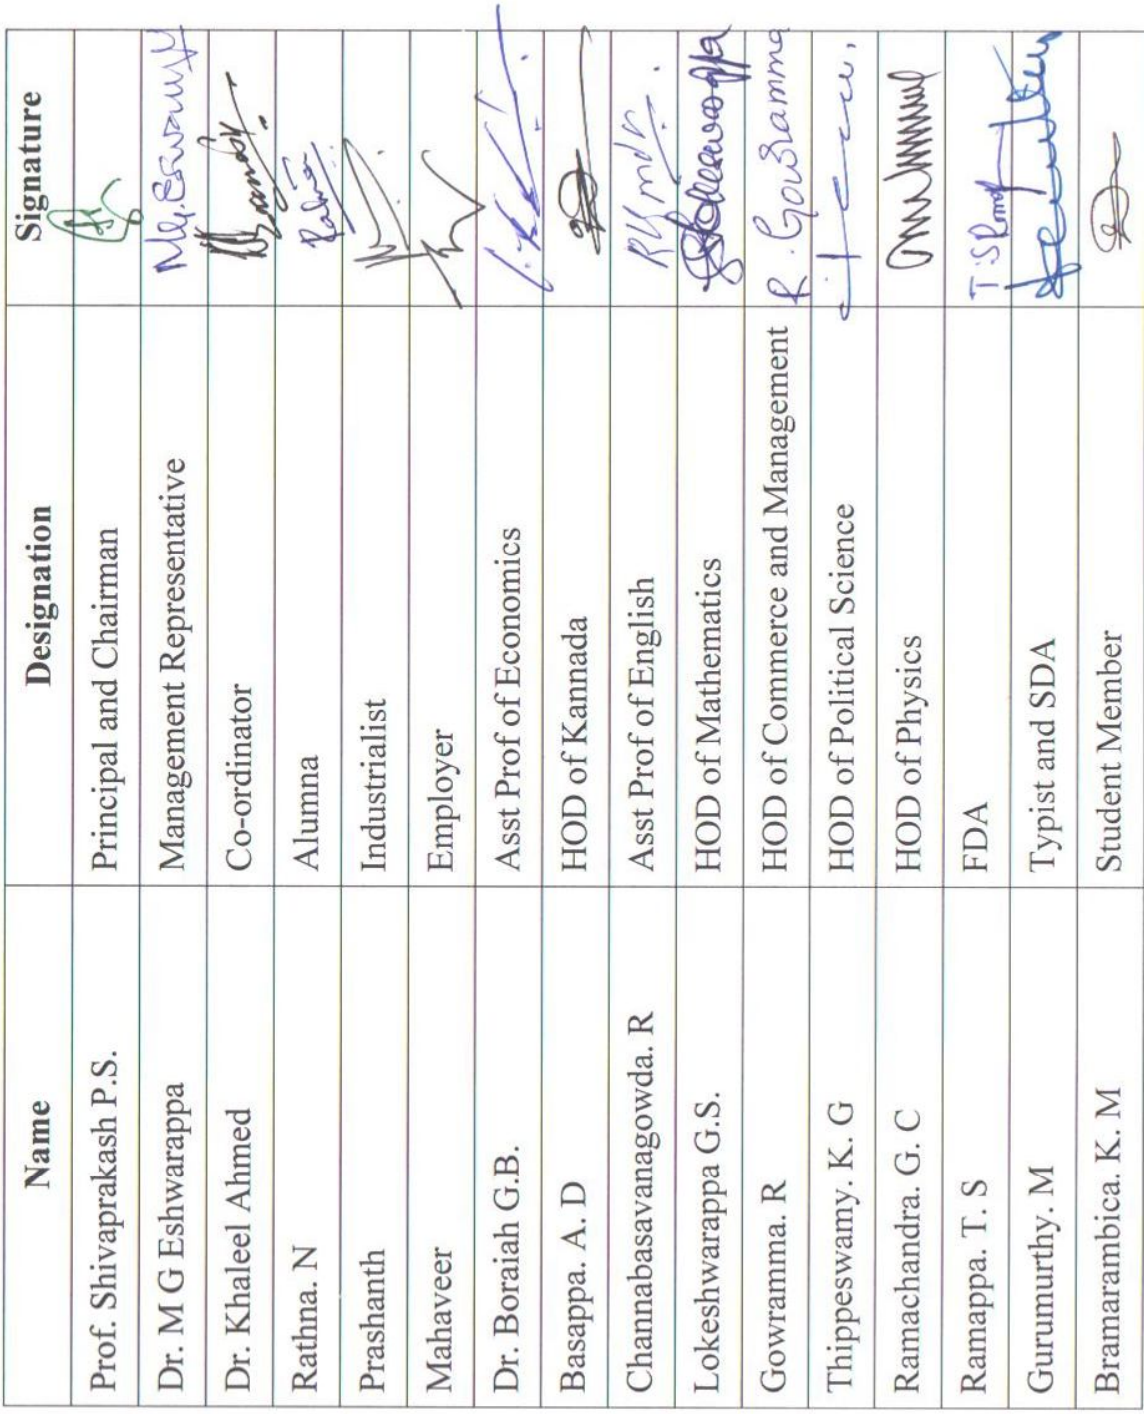 Name Designation Signature
Prof. Shivaprakash P.S. Principal and Chairman
Dr. M G Eshwarappa Management Representative
Dr. Khaleel Ahmed Co-ordinator
Rathna. N Alumna
Prashanth Industrialist
Mahaveer Employer
Dr. Boraiah G.B. Asst Prof of Economics
Basappa. A. D HOD of Kannada
Channabasavanagowda. R Asst Prof of English
Lokeshwarappa G.S. HOD of Mathematics
Gowramma. R HOD of Commerce and Management R. Gowramma
Thippeswamy. K. G HOD of Political Science
Ramachandra. G. C HOD of Physics
Ramappa. T. S FDA
Gurumurthy. M Typist and SDA
Bramarambica. K. M Student Member